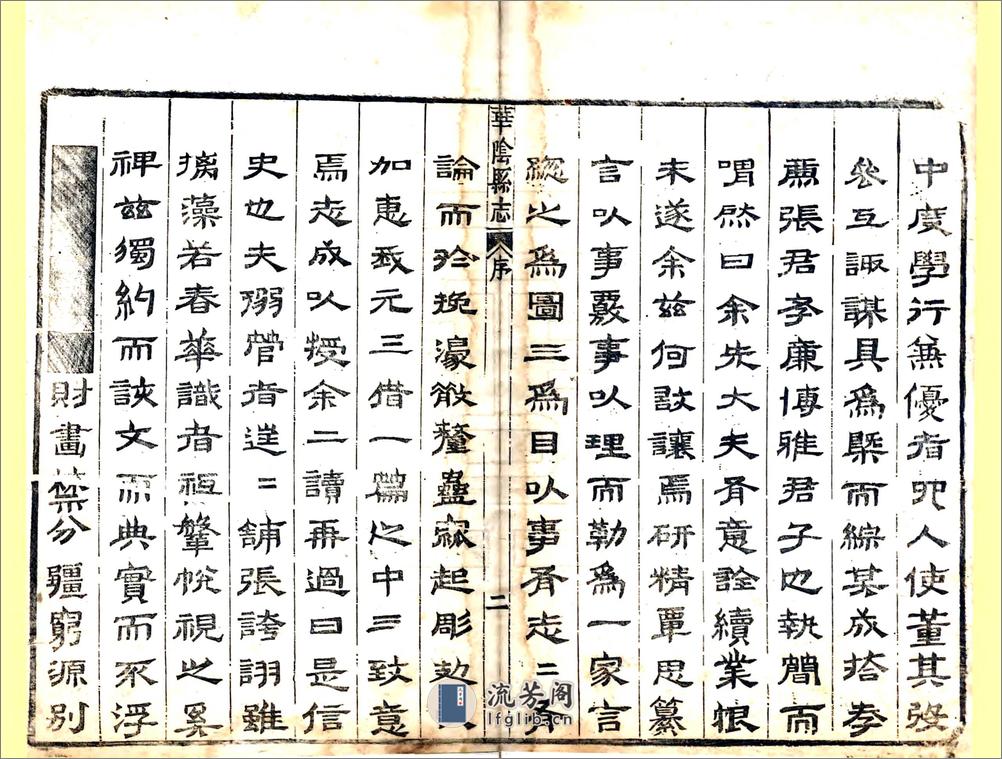 中廣學行兼優者四人使董其役
參互諏謀具爲槩而綜其成
張君孝廉博雅君子也執簡而
喟然曰余先大夫有意詮續業
未遂余茲何敢讓焉研精覃思纂
言以事覈事以理而勒爲一家言
總之爲圖三爲目以事 志二
華陰縣志 序 二
論而於挽濠散釐蠱 起彫
加惠我元三借一篇之中三致意
焉志成以授余二讀再過曰是信
史也夫溺管者逞二鋪張誇詡雖
摛藻若春華識者祗鞶帨視之奚
裨茲獨約而該文而典實而不浮
財畫 分疆窮源別
流芳阁
lfglib.cn